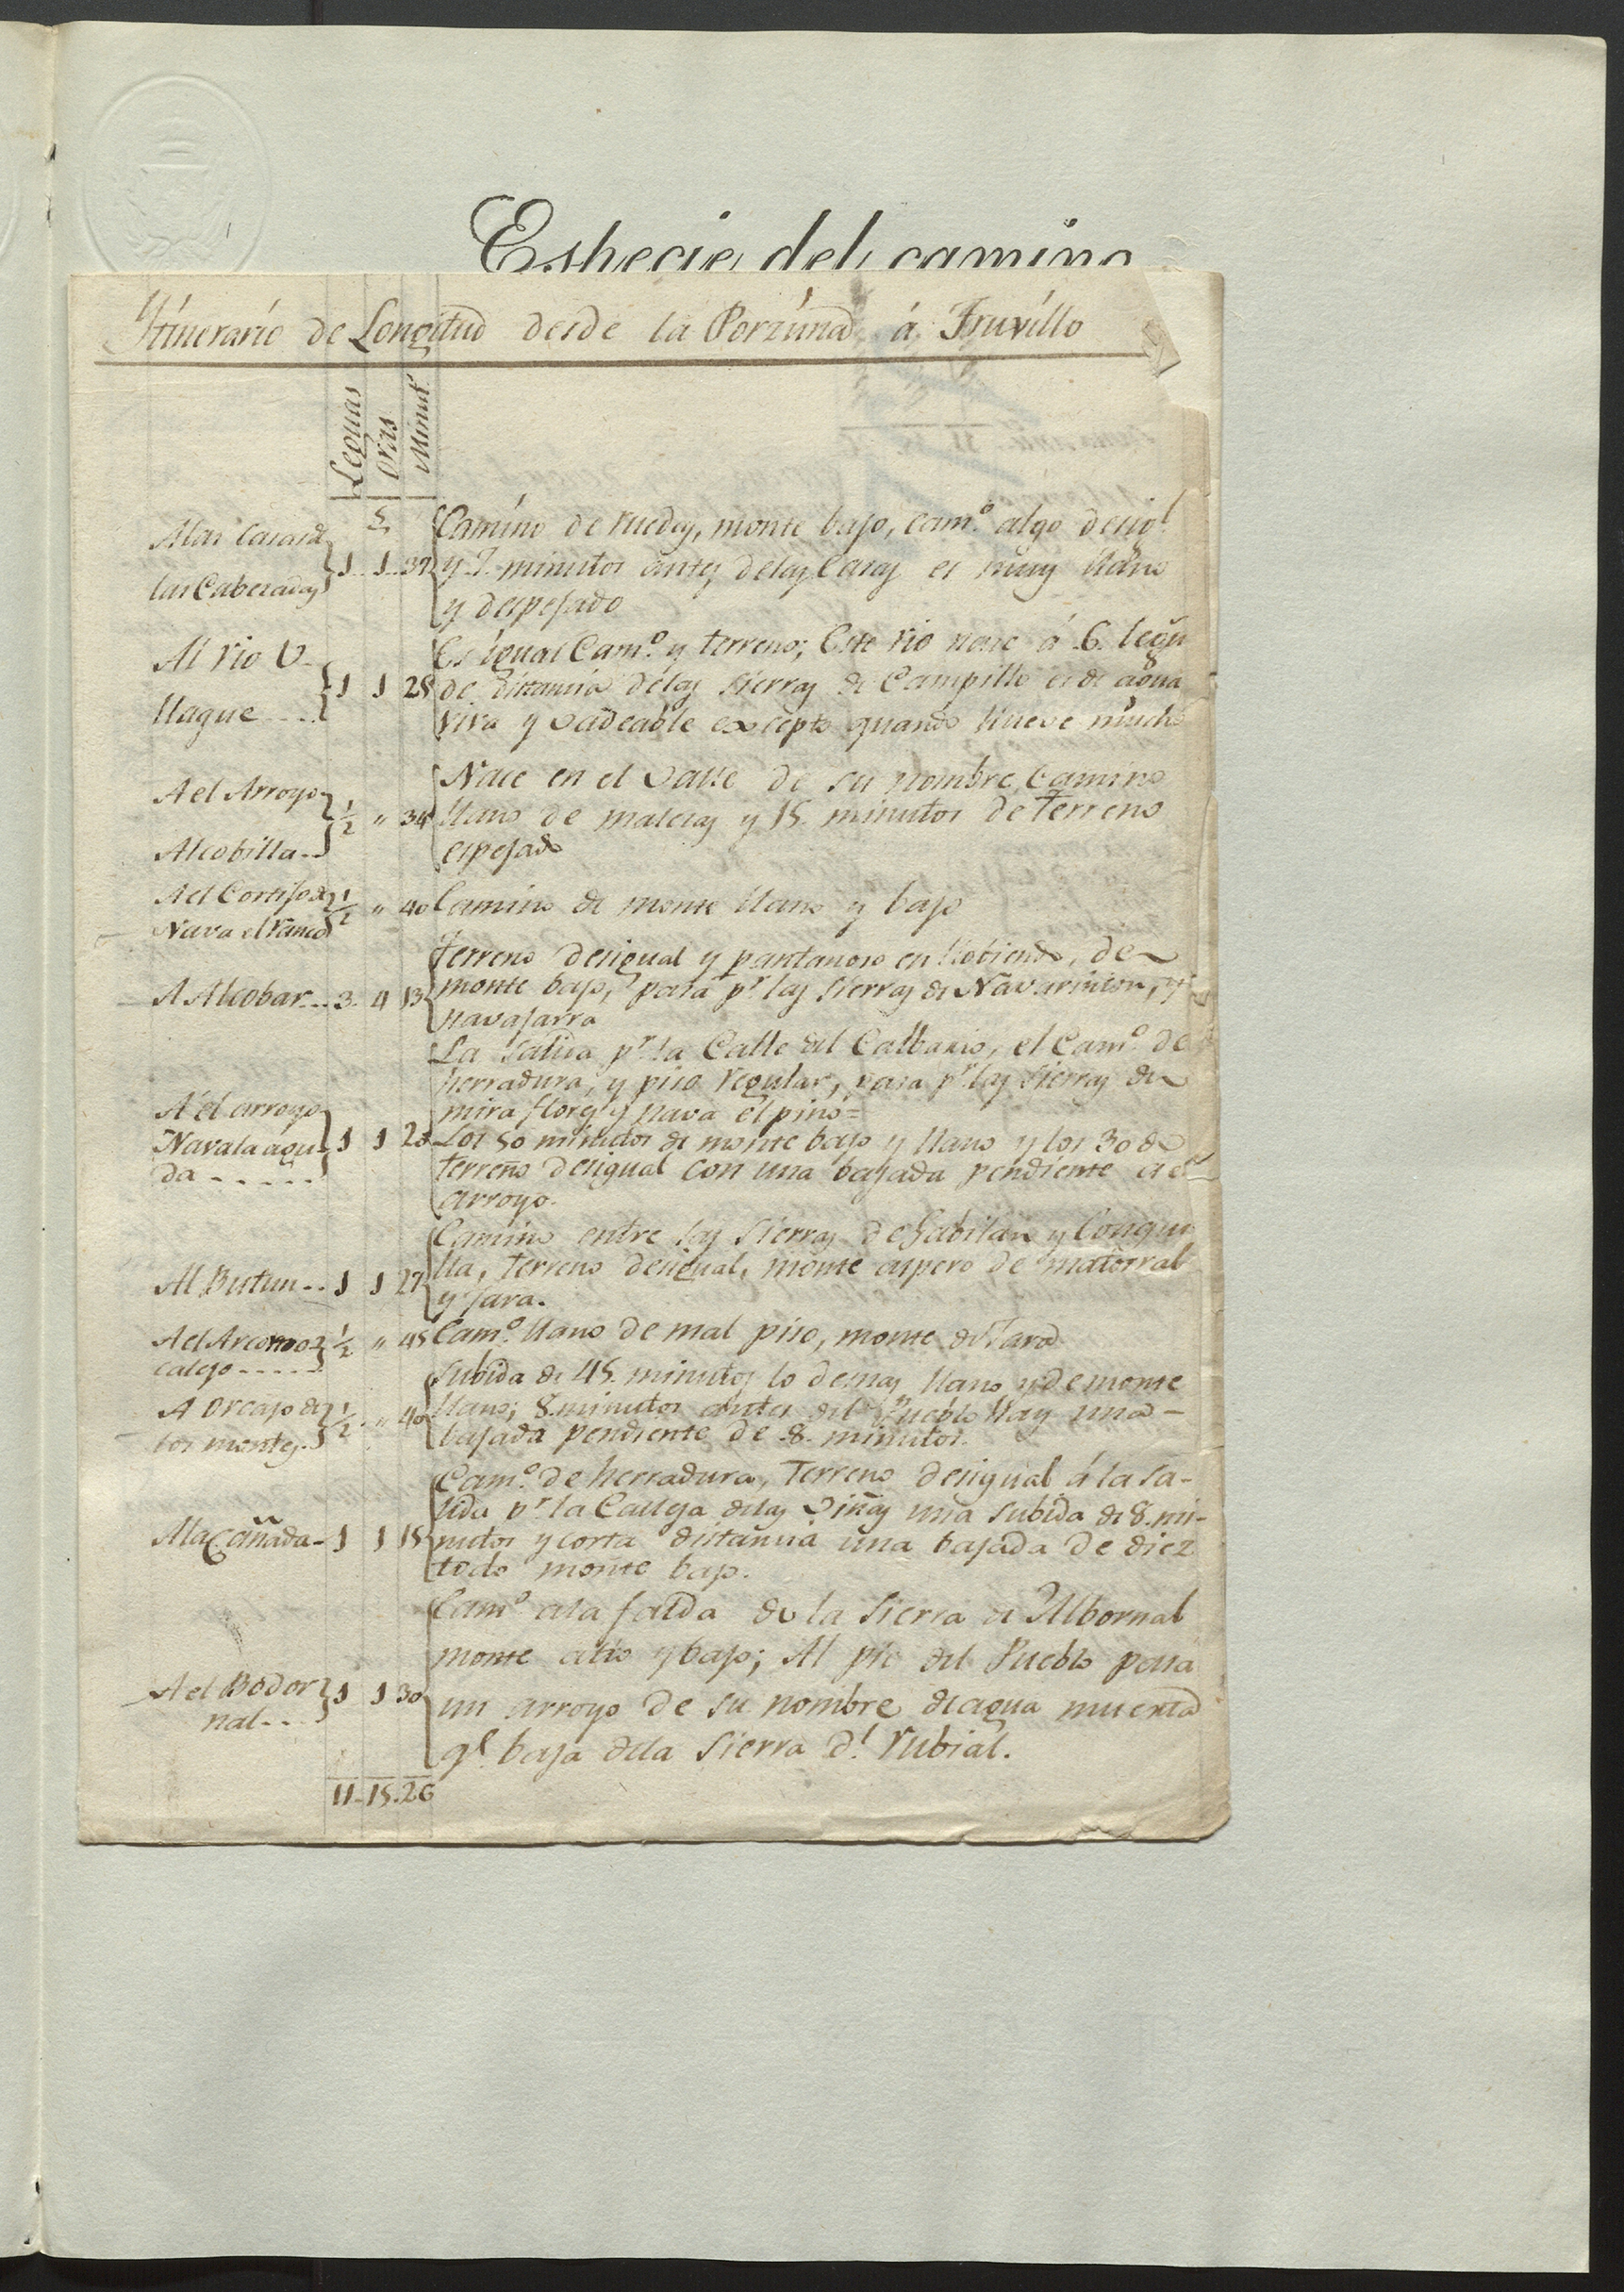 Especie del camino
Itinerario de Longitud desde la Porzuna á Truxillo
Leguas
Oras
Minut.
A las Casas d
las Caberadas 1 1 37
Camino de ruedas, monte bajo, cam.º algo desigl.
y 7. minutos antes delas Casas es muy llano
y despejado
Al rio U-
llaque.... 1 1 28
Es igual Cam.º y terreno; Este rio nace á 6. legu
de distancia delas Sierras de Campillo es de agua
viva y vadeable excepto quando llueve mucho
A el Arroyo
Alcobilla.. ½ " 34
Nace en el Valle de su nombre, Camino
llano de malezas y 15 minutos de terreno
espejado
A el Cortijo de
Nava el ½ " 40 Camino de monte llano y bajo
A Alcobar... 3. 4 13
terreno desigual y pantanoso en llobiendo, de
monte bajo, pasa pr. las Sierras de Navarincon, y
navajarra
A el arroyo
Navalaagu-
da ..... 1 1 20
La salida pr. la Calle del Calbario, el Cam.º de
herradura, y piso regular, pasa pr. las Sierras de
mira flores y nava el pino=
Los 50 minutos de monte bajo y llano y los 30 de
terreno desigual con una bajada pendiente a el
arroyo.
Al Butun.. 1 1 27
Camino entre las Sierras de Gabilan y Conqui
lla, terreno desigual, monte aspero de matorral
y jara.
A el Arcornoo-
calejo ..... ½ " 45 Cam.º llano de mal piso, monte de Jara
A Orcajo de
los montes. ½ " 40
Subida de 45. minutos lo demas llano y de monte
llano; 8. minutos antes del Pueblo hay una -
bajada pendiente de 8. minutos.
A la Cañada- 1 1 15
Cam.º de herradura, Terreno desigual á la sa-
lida pr. la Calleja delas Viñas una subida de 8. mi-
nutos y corta distancia una bajada de diez
todo monte bajo.
A el Bodor
nal... 1 1 30
Cam.º a la falda de la Sierra de Albornal
monte alto y bajo; Al pie del Pueblo pasa
un arroyo de su nombre de agua muerta
qe. baja dela Sierra dl. Rubial.
11-15.26